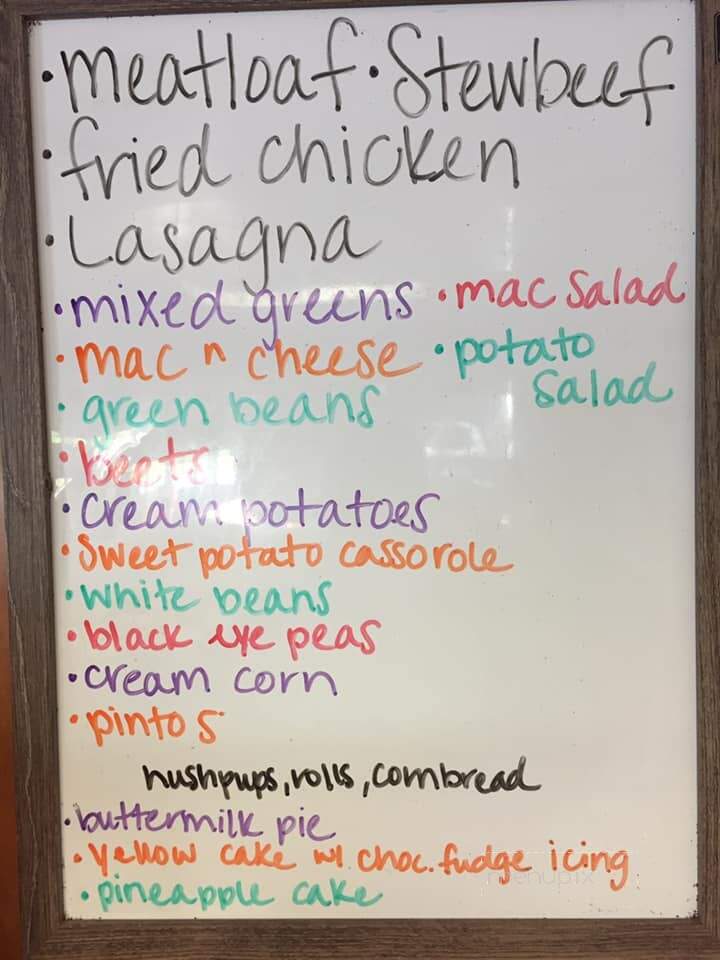 • meatloaf • Stewbeef
• fried chicken
• Lasagna
• mixed greens • mac Salad
• mac n cheese • potato
salad
• green beans
• beets
• cream potatoes
• Sweet potato cassorole
• white beans
• black eye peas
• cream corn
• pintos
hushpups, rolls, cornbread
• buttermilk pie
• yellow cake w/ choc. fudge icing
• pineapple cake
menupix